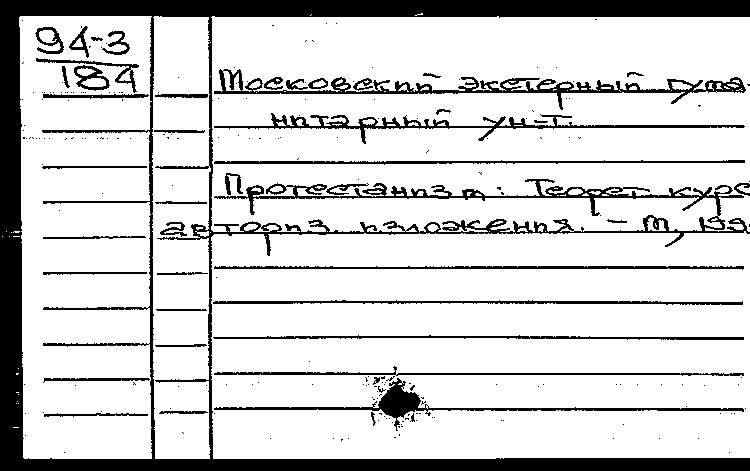 94-3
184
Московский экстерный гума-
нитарный ун-т.
Протестантизм: Теорет. курс
авториз. изложения. – М, 199